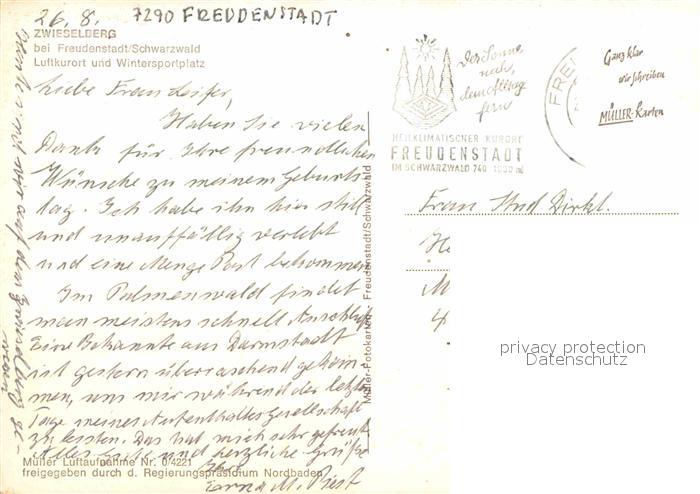 26. 8. 7290 FREUDENSTADT
ZWIESELBERG
bei Freudenstadt/Schwarzwald
Luftkurort und Wintersportplatz
Liebe Frau
Haben Sie vielen
Dank für Ihre freundlichen
Wünsche zu meinem Geburts-
tag. Ich habe ihn hier still
und unauffällig verlebt
und eine Menge Post bekommen.
Im Palmenwald findet
man meistens schnell Anschluß
Eine Bekannte aus Darmstadt
ist gestern überraschend gekom-
men, um mir während der letzten
Tage meines Aufenthaltes Gesellschaft
zu leisten. Das hat mich sehr gefreut.
Alles Gute und herzliche Grüße
Ihre
Erna M.
Müller Luftaufnahme Nr. 0/4221
freigegeben durch d. Regierungspräsidium Nordbaden
wir auf dem Zwieselberg ge-
Müller-Fotokarten Freudenstadt/Schwarzwald
Der Sonne
nah,
dem Alltag
fern
HEILKLIMATISCHER KURORT
FREUDENSTADT
IM SCHWARZWALD 740-1000 m
FREU
Ganz klar
wir schreiben
MÜLLER-Karten
Frau Stud Dirkt.
privacy protection
Datenschutz